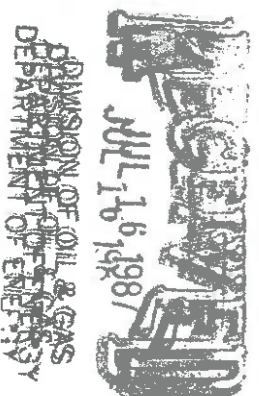 RECEIVED
JUL 16 1987
DIVISION OF OIL & GAS
DEPARTMENT OF ENERGY